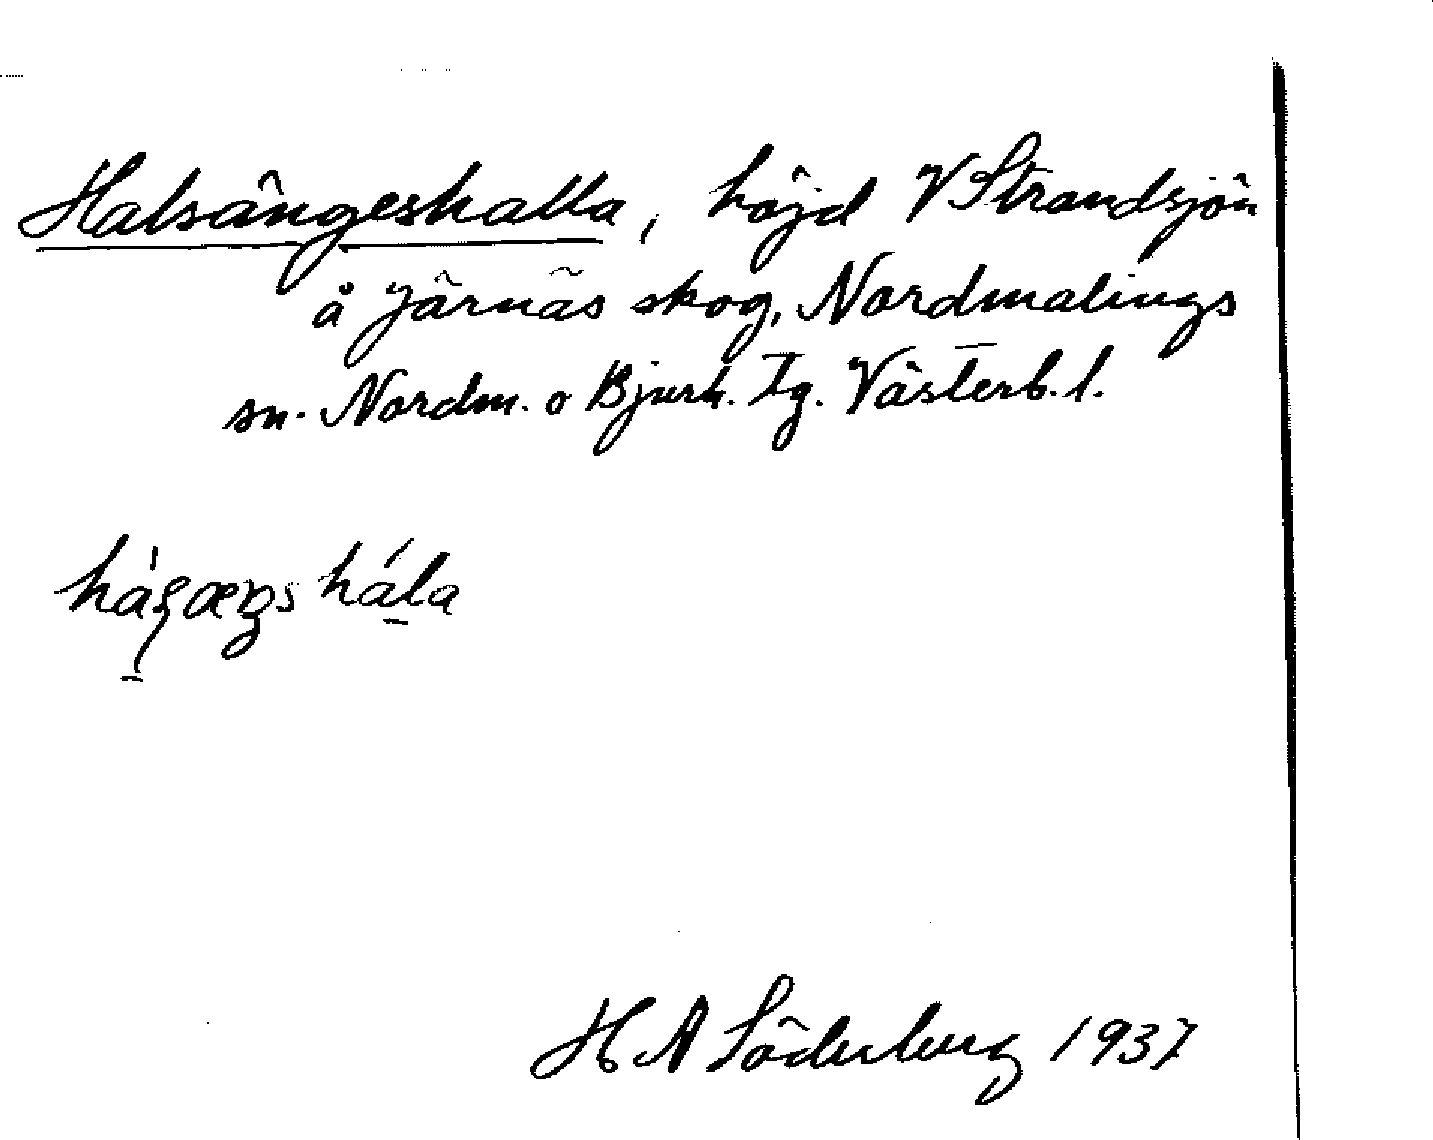 Halsängeshalla, höjd V Strandsjön
å Järnäs skog, Nordmalings
sn. Nordm. o Bjurh. tg. Västerb. l.
H A Söderberg 1937